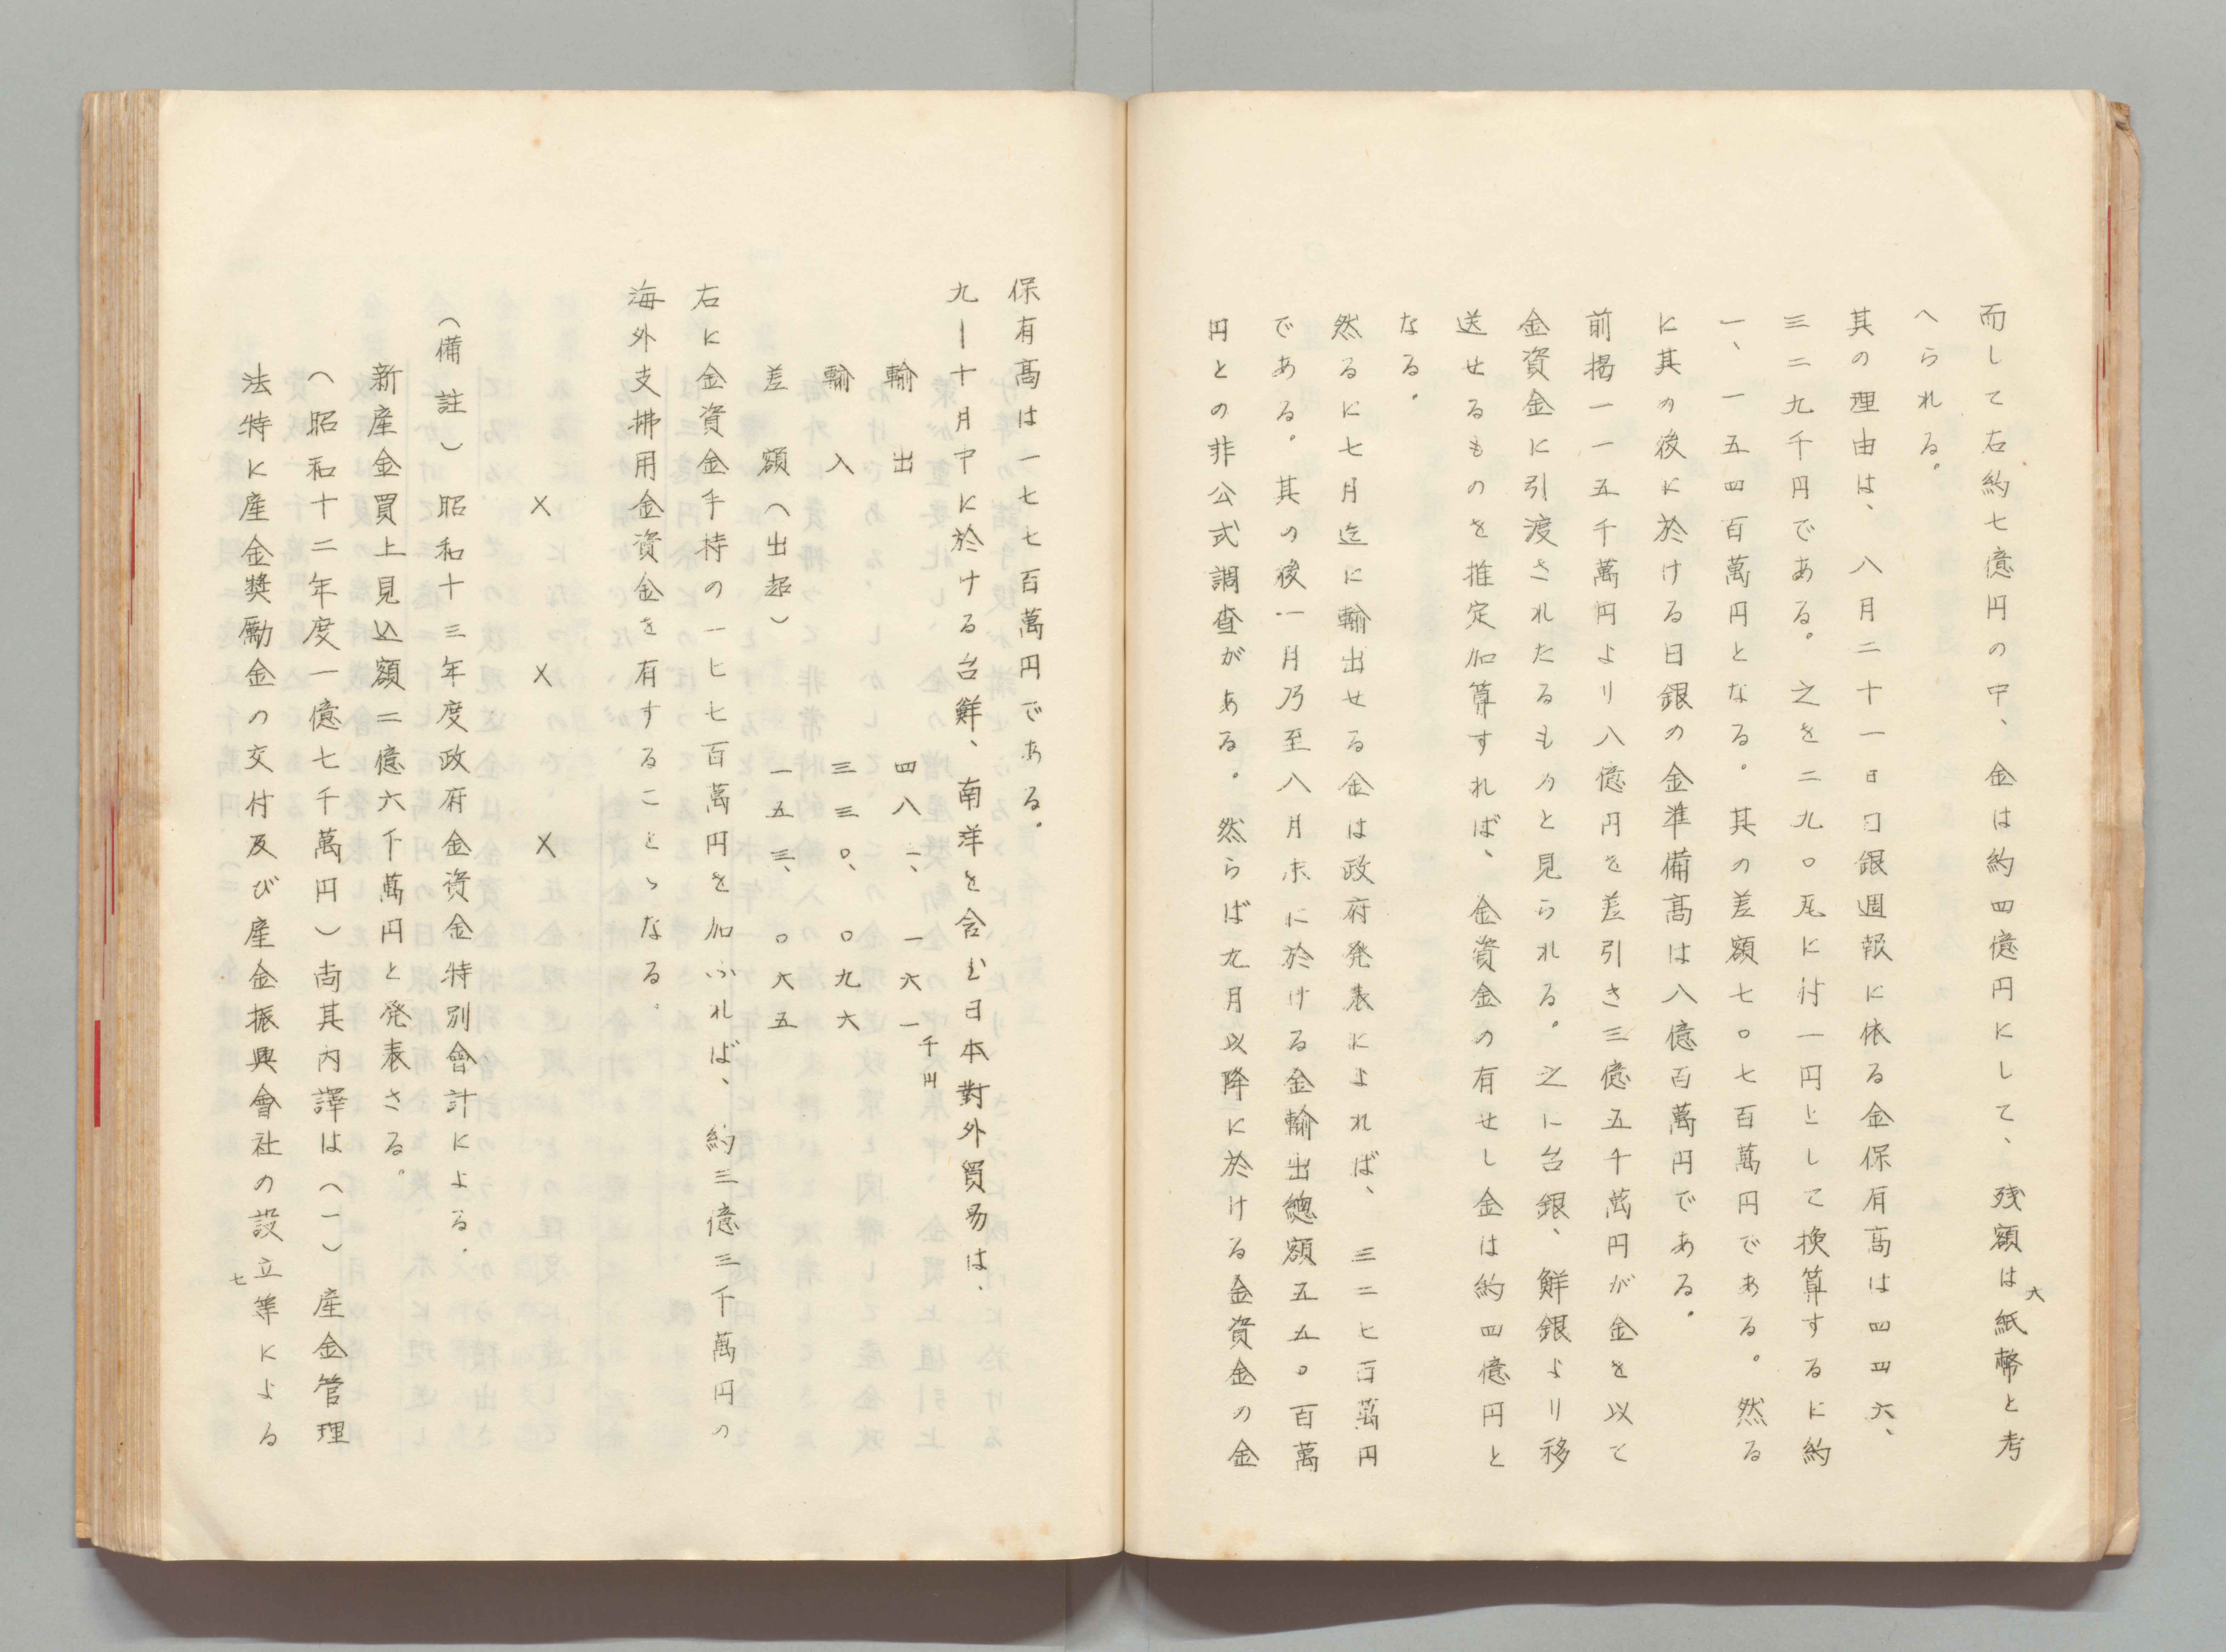 而して右約七億円の中、金は約四億円にして、残額は紙幣と考
へられる。
其の理由は、八月二十一日日銀週報に依る金保有高は四四六、
三二九千円である。之を二九〇瓱に付一円として換算するに約
一、一五四百萬円となる。其の差額七〇七百萬円である。然る
に其の後に於ける日銀の金準備高は八億百萬円である。
前掲一一五千萬円より八億円を差引き三億五千萬円が金を以て
金資金に引渡されたるものと見られる。之に台銀、鮮銀より移
送せるものを推定加算すれば、金資金の有せし金は約四億円と
なる。
然るに七月迄に輸出せる金は政府発表によれば、三二七百萬円
である。其の後一月乃至八月末に於ける金輸出總額五五〇百萬
円との非公式調査がある。然らば九月以降に於ける金資金の金
六
保有高は一七七百萬円である。
九―十月中に於ける台鮮、南洋を含む日本對外貿易は、
輸出 四八二、一六一千円
輸入 三三〇、〇九六
差額(出超) 一五三、〇六五
右に金資金手持の一七七百萬円を加ふれば、約三億三千萬円の
海外支拂用金資金を有することゝなる。
× × ×
(備註)昭和十三年度政府金資金特別會計による。
新産金買上見込額二億六千萬円と発表さる。
(昭和十二年度一億七千萬円)尚其内譯は(一)産金管理
法特に産金奬勵金の交付及び産金振興會社の設立等による
七